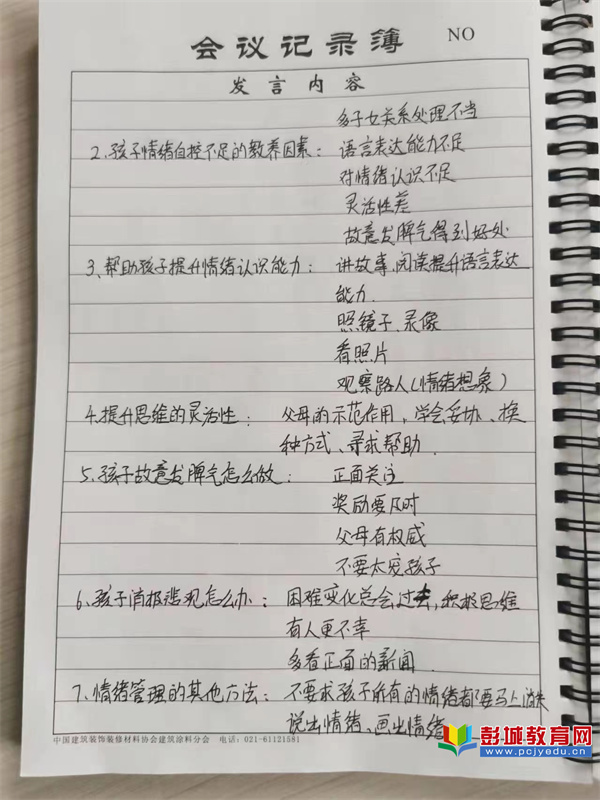 会议记录簿 NO
发言内容
多子女关系处理不当
2、孩子情绪自控不足的教养因素： 语言表达能力不足
对情绪认识不足
灵活性差
故意发脾气得到好处
3、帮助孩子提升情绪认识能力： 讲故事、阅读提升语言表达
能力.
照镜子、录像
看照片
观察路人(情绪想象)
4、提升思维的灵活性： 父母的示范作用，学会妥协、换
种方式、寻求帮助.
5、孩子故意发脾气怎么做： 正面关注
奖励要及时
父母有权威
不要太宠孩子
6、孩子消极悲观怎么办： 困难变化总会过去，积极思维
有人更不幸
多看正面的新闻.
7、情绪管理的其他方法： 不要求孩子所有的情绪都要马上消失
说出情绪、画出情绪
中国建筑装饰装修材料协会建筑涂料分会 电话：021-61121581
彭城教育网
www.pcjyedu.cn